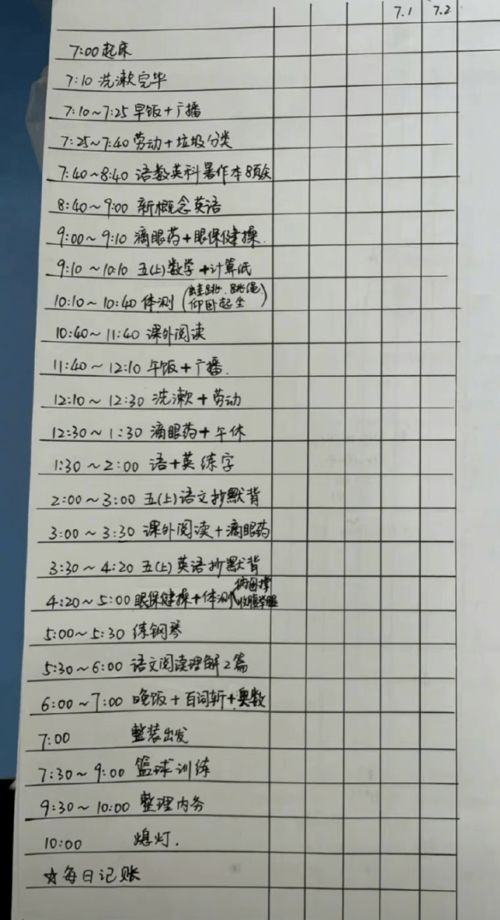 7.1 7.2
7:00起床
7:10 洗漱完毕
7:10~7:25 早饭+广播
7:25~7:40 劳动+垃圾分类
7:40~8:40 语数英科暑作本8页
8:40~9:00 新概念英语
9:00~9:10 滴眼药+眼保健操
9:10~10:10 五(上)数学+计算低
10:10~10:40 体测(蛙跳、跳绳 仰卧起坐)
10:40~11:40 课外阅读
11:40~12:10 午饭+广播.
12:10~12:30 洗漱+劳动
12:30~1:30 滴眼药+午休
1:30~2:00 语+英 练字
2:00~3:00 五(上)语文抄默背
3:00~3:30 课外阅读+滴眼药
3:30~4:20 五(上)英语抄默背
4:20~5:00 眼保健操+体测
5:00~5:30 练钢琴
5:30~6:00 语文阅读理解2篇
6:00~7:00 晚饭+百词斩+奥数
7:00 整装出发
7:30~9:00 篮球训练
9:30~10:00 整理内务
10:00 熄灯.
☆每日记账